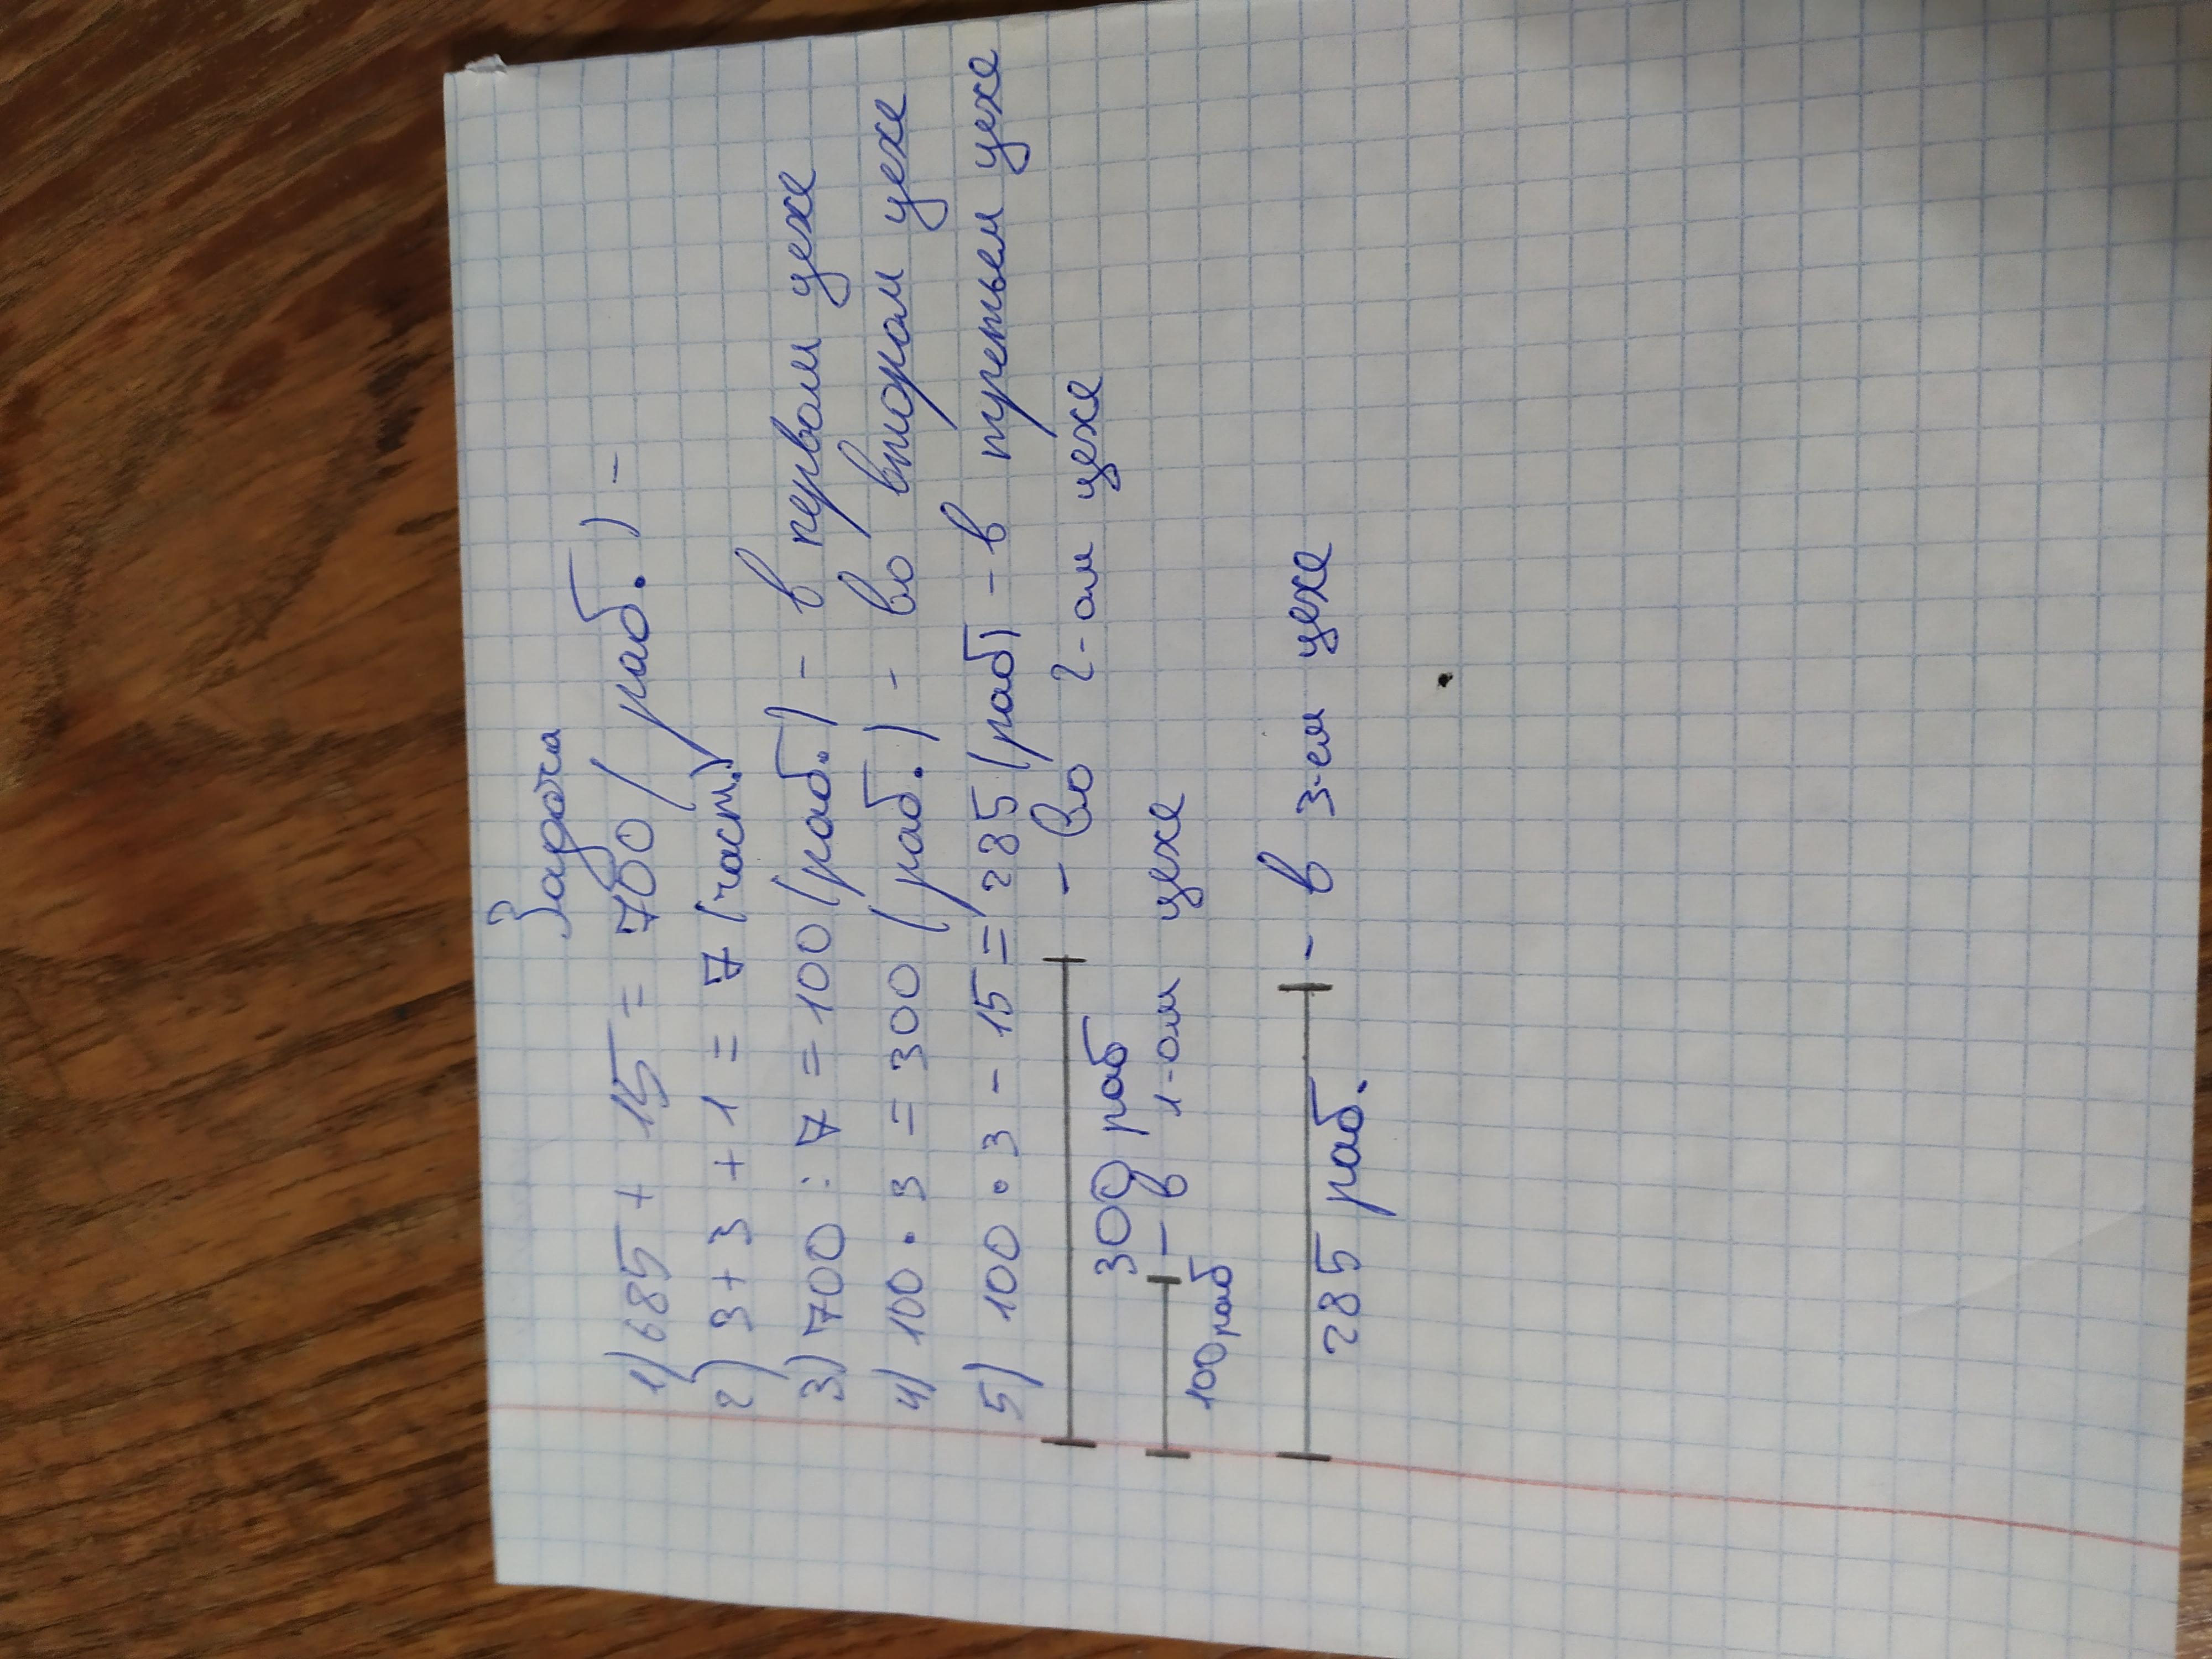 Задача
1) 685 + 15 = 700 (раб.) -
2) 3 + 3 + 1 = 7 (част.)
3) 700 : 7 = 100 (раб.) - в первом цехе
4) 100 • 3 = 300 (раб.) - во втором цехе
5) 100 • 3 - 15 = 285 (раб) - в третьем цехе
- во 2-ом цехе
300 раб
- в 1-ом цехе
100 раб
- в 3-ем цехе
285 раб.